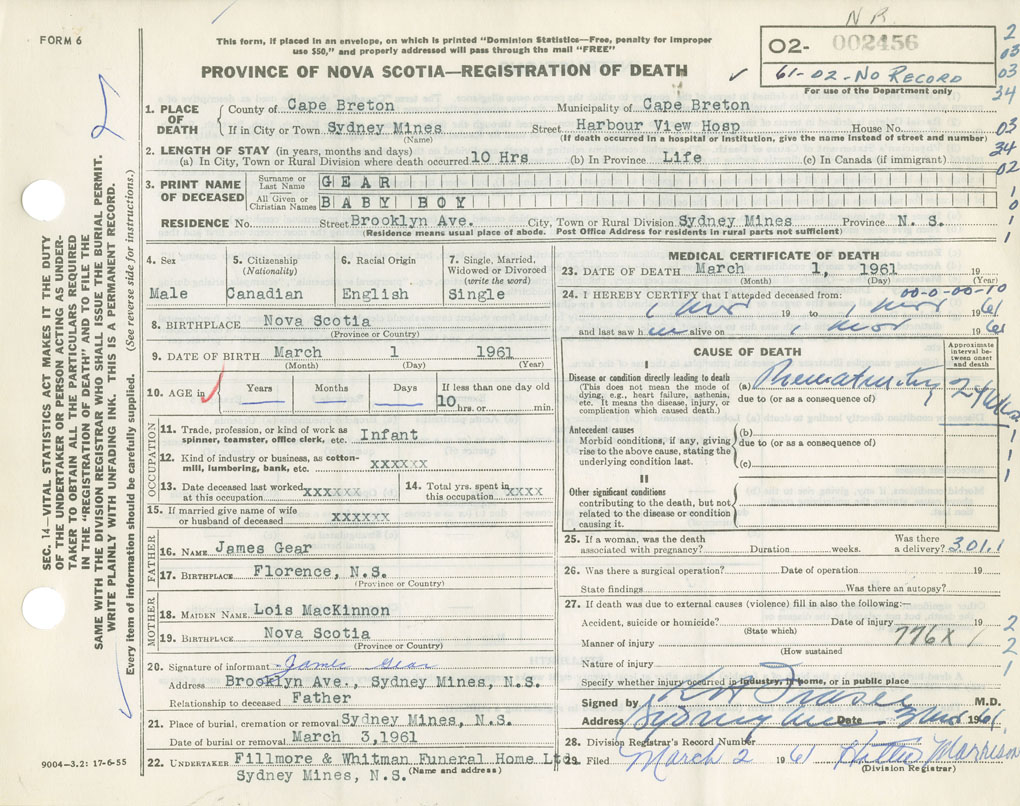 N R.
FORM 6
This form, if placed in an envelope, on which is printed "Dominion Statistics—Free, penalty for improper
use $50," and properly addressed will pass through the mail "FREE"
O2- 002456
61-02-NO RECORD
For use of the Department only
PROVINCE OF NOVA SCOTIA—REGISTRATION OF DEATH
2
03
03
34
03
34
02
1
0
1
1
1. PLACE OF DEATH
County of Cape Breton Municipality of Cape Breton
If in City or Town Sydney Mines Street Harbour View Hosp House No.
(Name) (If death occurred in a hospital or institution, give the name instead of street and number)
2. LENGTH OF STAY (in years, months and days)
(a) In City, Town or Rural Division where death occurred 10 Hrs (b) In Province Life (c) In Canada (if immigrant)
3. PRINT NAME OF DECEASED
Surname or Last Name GEAR
All Given or Christian Names BABY BOY
RESIDENCE No. Street Brooklyn Ave. City, Town or Rural Division Sydney Mines Province N. S.
(Residence means usual place of abode. Post Office Address for residents in rural parts not sufficient)
4. Sex
Male
5. Citizenship
(Nationality)
Canadian
6. Racial Origin
English
7. Single, Married,
Widowed or Divorced
(write the word)
Single
8. BIRTHPLACE Nova Scotia
(Province or Country)
9. DATE OF BIRTH March 1 1961
(Month) (Day) (Year)
10. AGE in Years Months Days If less than one day old
10 hrs. or min.
OCCUPATION
11. Trade, profession, or kind of work as
spinner, teamster, office clerk, etc. Infant
12. Kind of industry or business, as cotton-
mill, lumbering, bank, etc. xxxxxx
13. Date deceased last worked
at this occupation xxxxxx
14. Total yrs. spent in
this occupation xxxx
15. If married give name of wife
or husband of deceased xxxxxx
FATHER
16. NAME James Gear
17. BIRTHPLACE Florence, N.S.
(Province or Country)
MOTHER
18. MAIDEN NAME Lois MacKinnon
19. BIRTHPLACE Nova Scotia
(Province or Country)
20. Signature of informant James Gear
Address Brooklyn Ave., Sydney Mines, N.S.
Relationship to deceased Father
21. Place of burial, cremation or removal Sydney Mines, N.S.
Date of burial or removal March 3,1961
22. UNDERTAKER Fillmore & Whitman Funeral Home Ltd
(Name and address)
Sydney Mines, N.S.
MEDICAL CERTIFICATE OF DEATH
23. DATE OF DEATH March 1, 1961 19
(Month) (Day) (Year)
00-0-00-10
24. I HEREBY CERTIFY that I attended deceased from:
1 Mar 19 to 1 Mar 1961
and last saw him alive on 1 Mar 1961
CAUSE OF DEATH
Approximate
interval be-
tween onset
and death
I
Disease or condition directly leading to death
(This does not mean the mode of
dying, e.g., heart failure, asthenia,
etc. It means the disease, injury, or
complication which caused death.)
(a) Prematurity
due to (or as a consequence of)
Antecedent causes
Morbid conditions, if any, giving
rise to the above cause, stating the
underlying condition last.
(b)
due to (or as a consequence of)
(c)
II
Other significant conditions
contributing to the death, but not
related to the disease or condition
causing it.
1
1
1
1
25. If a woman, was the death
associated with pregnancy? Duration weeks. Was there
a delivery? 301.1
26. Was there a surgical operation? Date of operation 19
State findings Was there an autopsy?
27. If death was due to external causes (violence) fill in also the following:—
Accident, suicide or homicide? Date of injury 19
(State which)
Manner of injury 776X 1
(How sustained
Nature of injury
2
2
1
Specify whether injury occurred in industry, in home, or in public place
Signed by Fraser M.D.
Address Sydney Mines Date 3 Mar 1961
28. Division Registrar's Record Number
29. Filed March 2 1961 Morrison
(Division Registrar)
SEC. 14—VITAL STATISTICS ACT MAKES IT THE DUTY
OF THE UNDERTAKER OR PERSON ACTING AS UNDER-
TAKER TO OBTAIN ALL THE PARTICULARS REQUIRED
IN THE "REGISTRATION OF DEATH" AND TO FILE THE
SAME WITH THE DIVISION REGISTRAR WHO SHALL ISSUE THE BURIAL PERMIT.
WRITE PLAINLY WITH UNFADING INK. THIS IS A PERMANENT RECORD.
Every item of information should be carefully supplied. (See reverse side for instructions.)
9004—3.2: 17-6-55